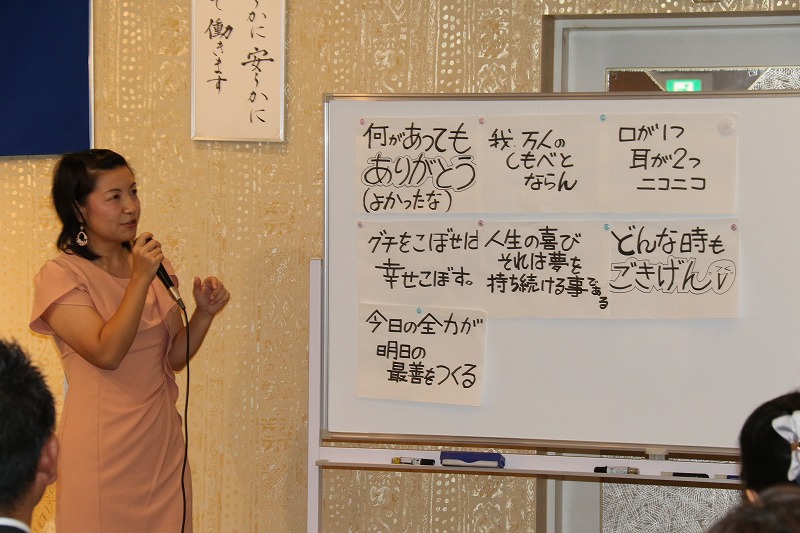 かに 安らかに
て 働きます
何があっても
ありがとう
(よかったな)
我 万人の
しもべと
ならん
口が1つ
耳が2つ
ニコニコ
グチをこぼせば
幸せこぼす。
人生の喜び
それは夢を
持ち続ける事である
どんな時も
ごきげんV
今日の全力が
明日の
最善をつくる